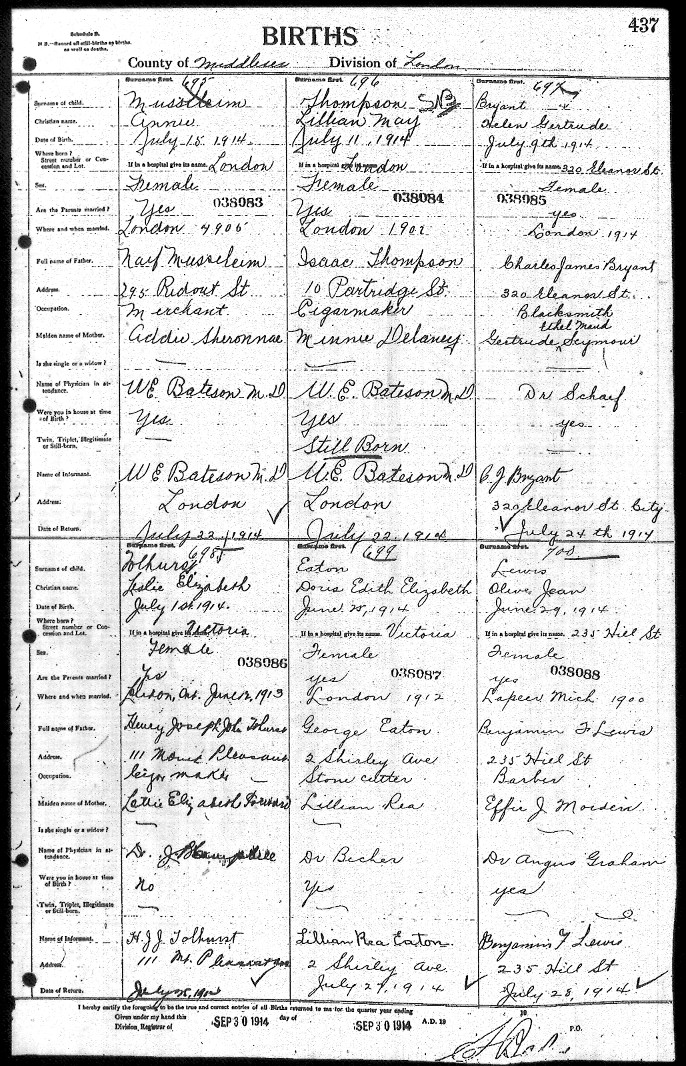 437
Schedule B.
N B.—Record all still-births as births, as well as deaths.
BIRTHS
County of Middlesex Division of London
Surname first. 695
Surname first. 696
Surname first. 697
Surname of child. Musseleim Thompson SB Bryant
Christian name. Annie Lillian May Helen Gertrude
Date of Birth. July 15 1914. July 11, 1914 July 9th 1914
Where born? Street number or Concession and Lot. If in a hospital give its name. London If in a hospital give its name. London If in a hospital give its name. 320 Eleanor St.
Sex. Female Female Female
038983 038984 038985
Are the Parents married? Yes Yes yes
Where and when married. London 1902 London 1914
Full name of Father. Naif Musseleim Isaac Thompson Charles James Bryant
Address. 295 Ridout St 10 Partridge St 320 Eleanor St.
Occupation. Merchant Cigarmaker Blacksmith
Ethel Maud
Maiden name of Mother. Addie Minnie Delaney Gertrude Seymour
Is she single or a widow? — — —
Name of Physician in attendance. W E Bateson M.D W. E. Bateson M.D Dr Schaef
Were you in house at time of Birth? Yes. Yes yes
Twin, Triplet, Illegitimate or Still-born. — Still Born —
Name of Informant. W E Bateson M.D W. E. Bateson M.D C. J Bryant
Address. London London 320 Eleanor St. City
Date of Return. July 22, 1914 July 22 1914 July 24th 1914
Surname first. 698
Surname first. 699
Surname first. 700
Surname of child. Tolhurst Eaton Lewis
Christian name. Leslie Elizabeth Doris Edith Elizabeth Olive Jean
Date of Birth. July 1st 1914. June 25, 1914 June 29, 1914
Where born? Street number or Concession and Lot. If in a hospital give its name. Victoria If in a hospital give its name. Victoria If in a hospital give its name. 235 Hill St
Sex. Female Female Female
038086 038087 038088
Are the Parents married? Yes yes yes
Where and when married. Ont. June 12, 1913 London 1912 Lapeer Mich 1900
Full name of Father. Henry Joseph John Tolhurst George Eaton Benjamin F Lewis
Address. 111 Mount Pleasant 2 Shirley Ave 235 Hill St
Occupation. Cigar maker Stone cutter Barber
Maiden name of Mother. Lottie Elizabeth Lillian Rea Effie J Moiden
Is she single or a widow? — — —
Name of Physician in attendance. Dr. J Campbell Dr Becher Dr Angus Graham
Were you in house at time of Birth? No Yes yes
Twin, Triplet, Illegitimate or Still-born. — — —
Name of Informant. H. J J. Tolhurst Lillian Rea Eaton Benjamin F Lewis
Address. 111 Mt. Pleasant Ave 2 Shirley Ave. 235 Hill St
Date of Return. July 29, 1914 July 28, 1914
I hereby certify the foregoing to be the true and correct entries of all Births returned to me for the quarter year ending 19
Given under my hand this SEP 30 1914 day of SEP 30 1914 A.D. 19
Division, Registrar of P.O.